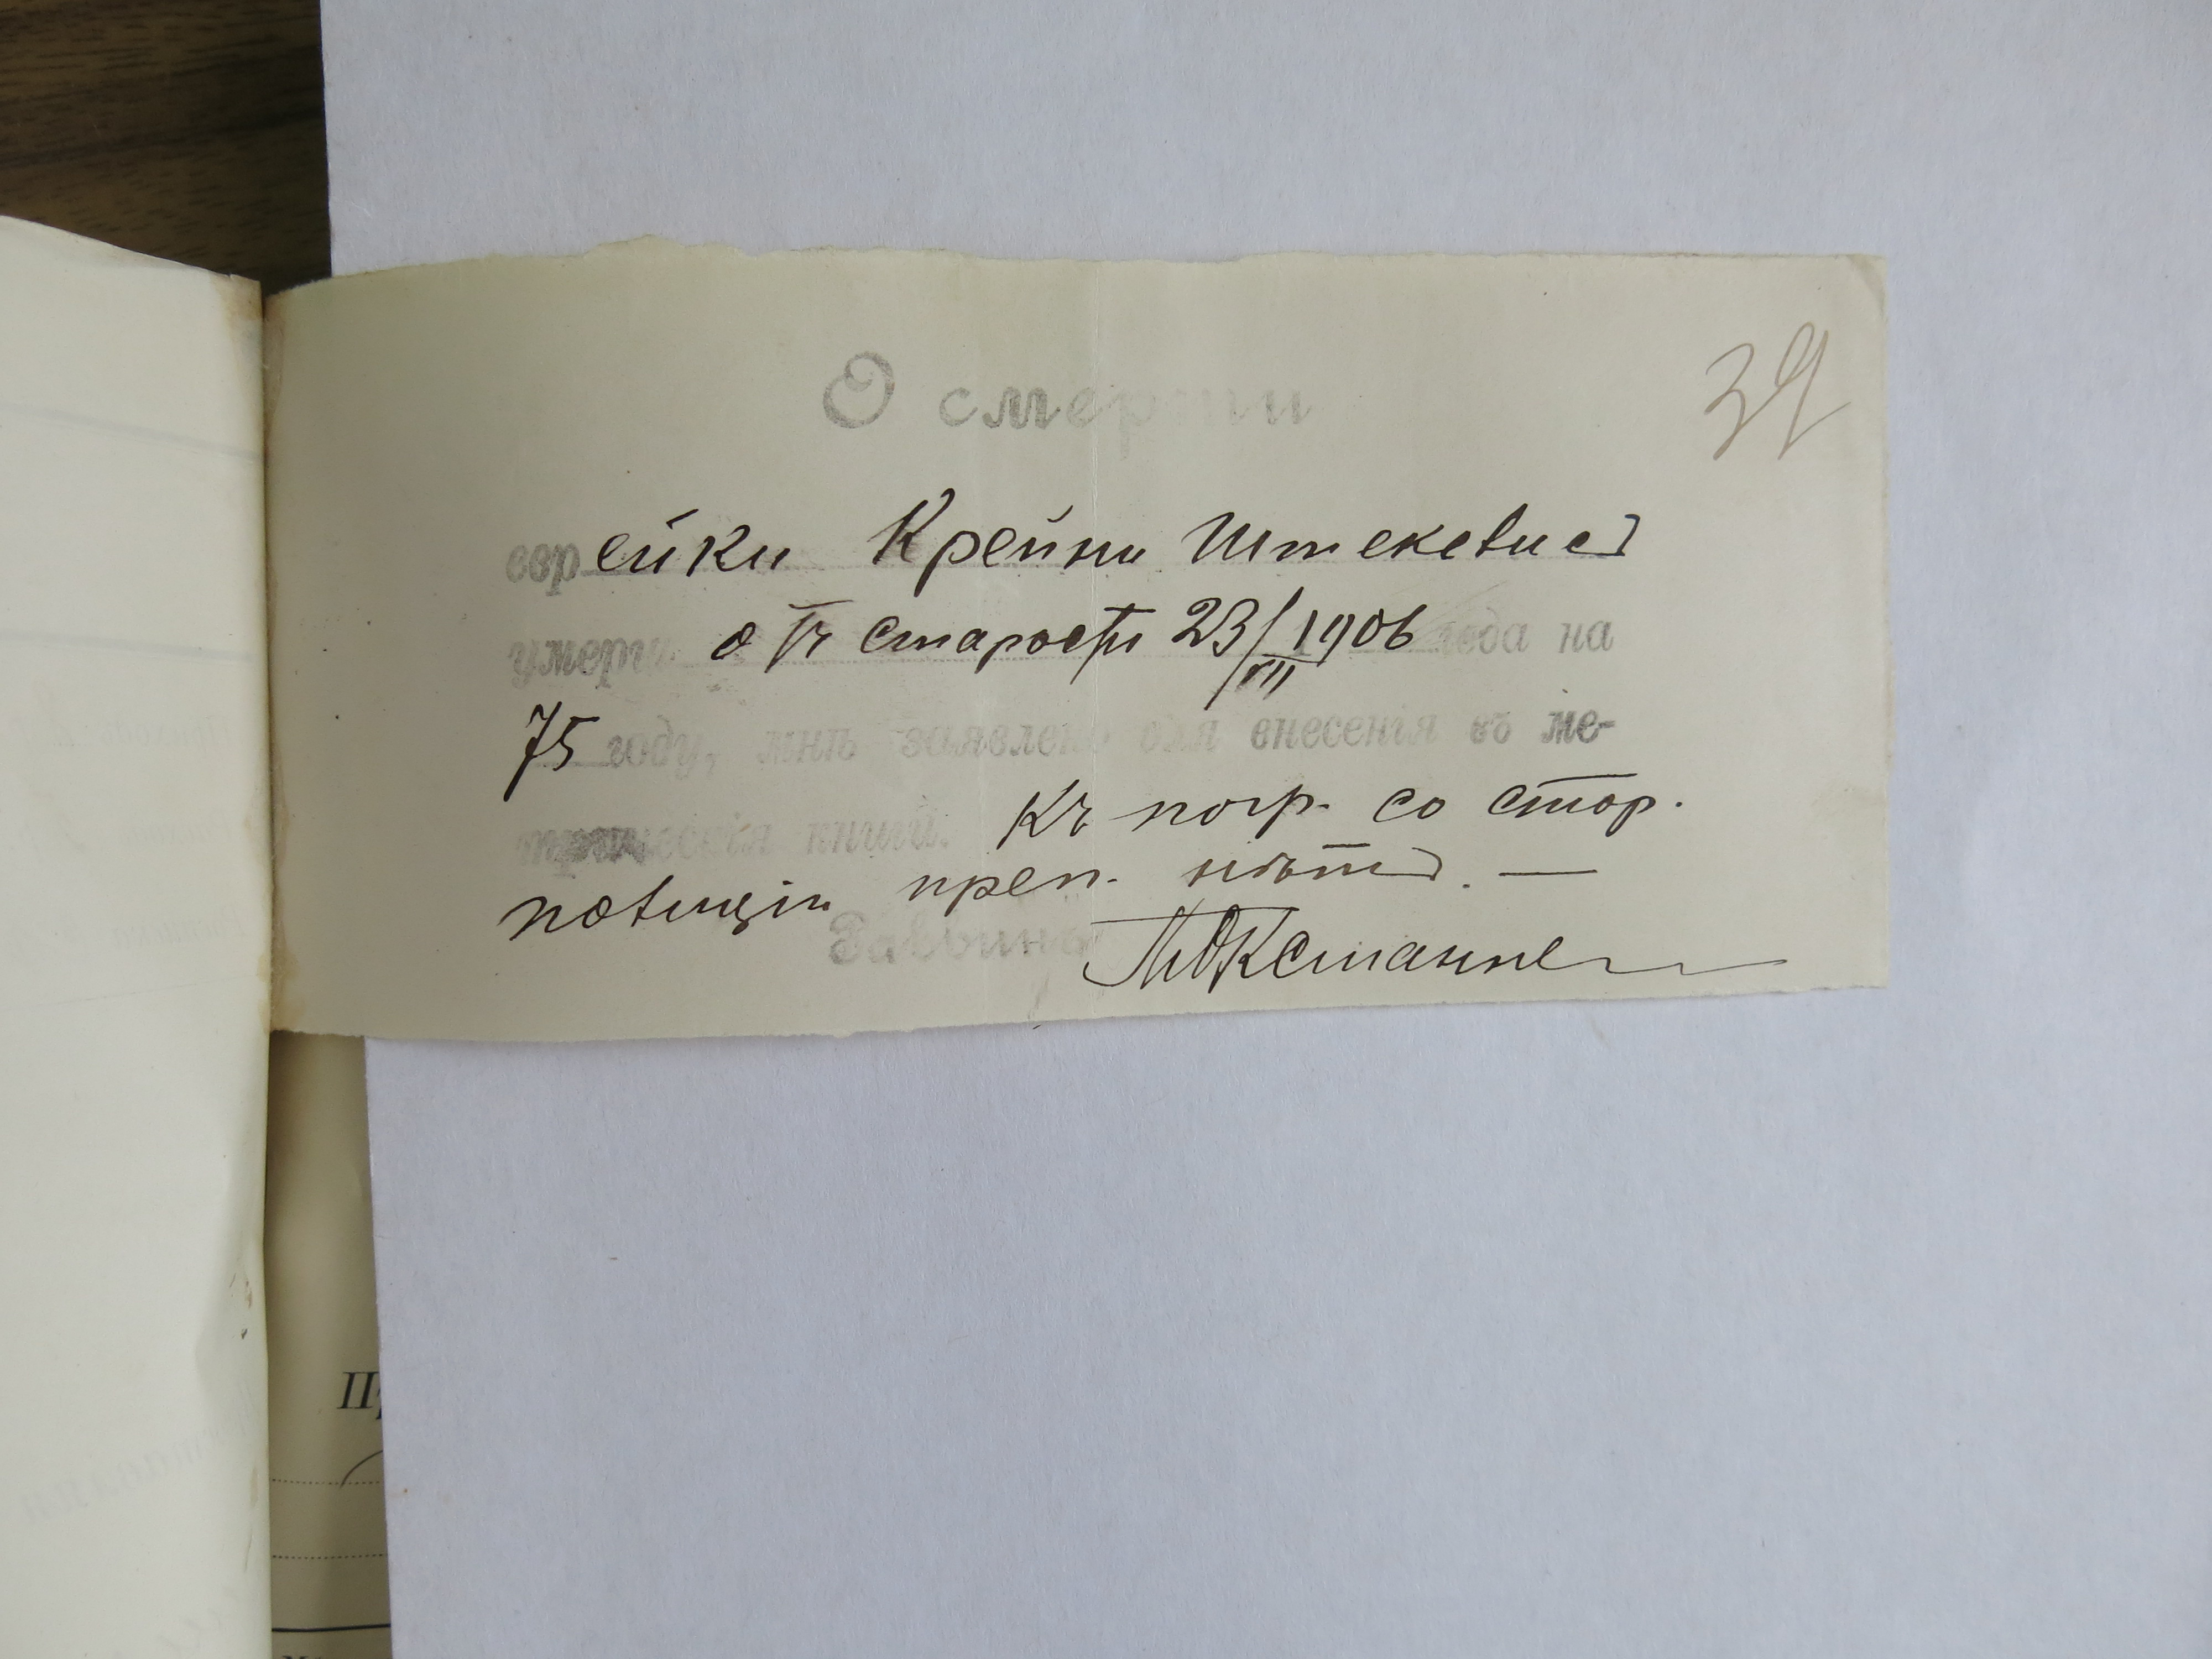 О смерти
39
еврейки Крейни Штексвисъ
умерш. отъ старости 23/III 1906 года на
75 году, мнѣ заявлено для внесенія въ ме-
трическія книги. Къ погр. со стор.
полиціи преп. нѣтъ. —
Раввинъ
Пр